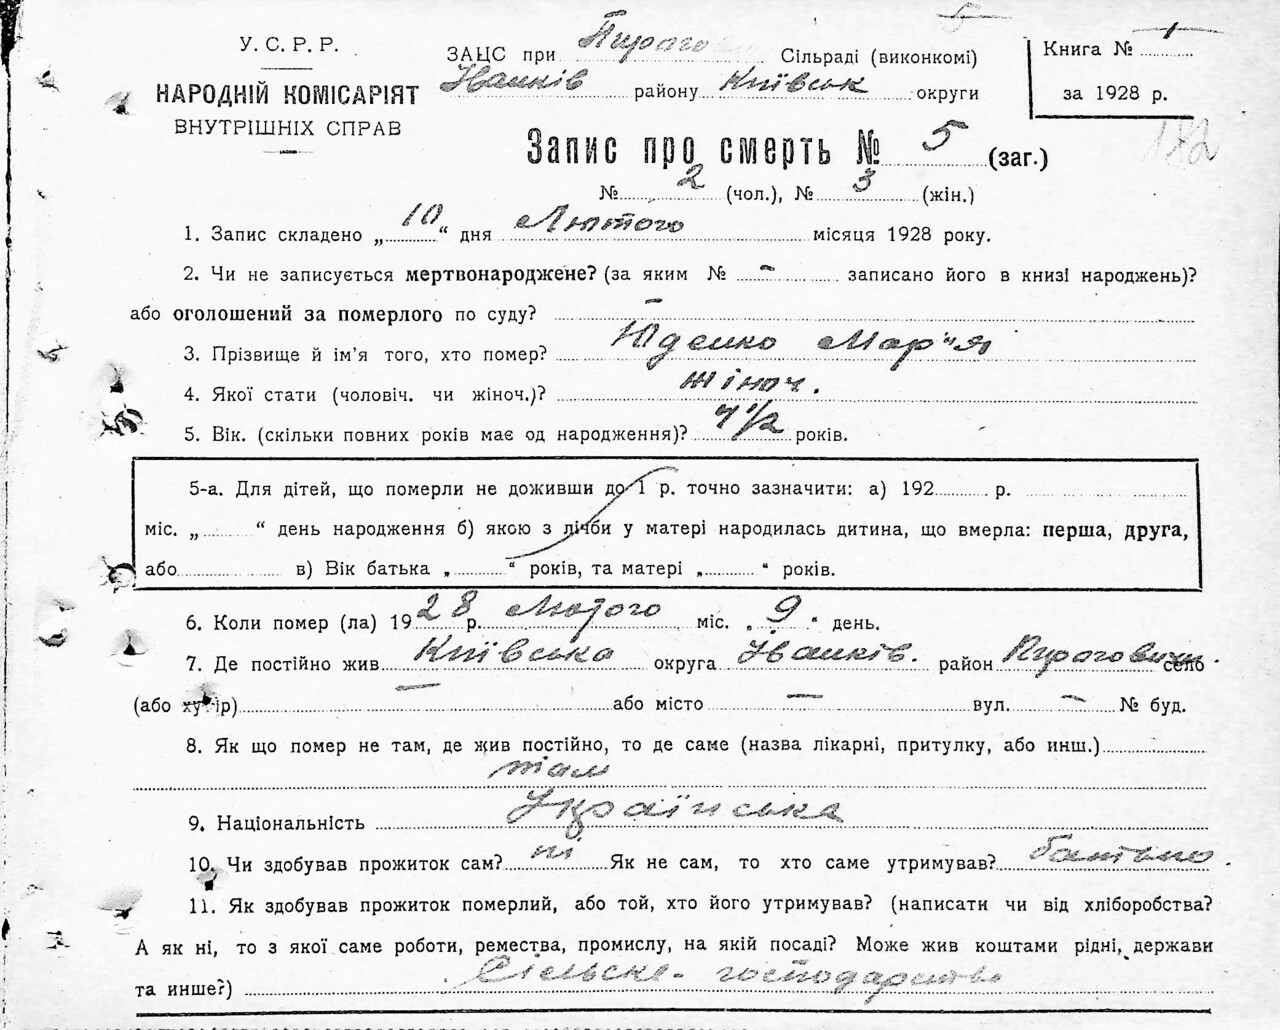 У. С. Р. Р.
НАРОДНІЙ КОМІСАРІЯТ
ВНУТРІШНІХ СПРАВ
ЗАЦС при Пирогов Сільраді (виконкомі)
Іванків району Київськ округи
Книга № 1
за 1928 р.
182
Запис про смерть № 5 (заг.)
№ 2 (чол.), № 3 (жін.)
1. Запис складено „ 10 “ дня Лютого місяця 1928 року.
2. Чи не записується мертвонароджене? (за яким № - записано його в книзі народжень)?
або оголошений за померлого по суду? -
3. Прізвище й ім’я того, хто помер? Юденко Мар'я
4. Якої стати (чоловіч. чи жіноч.)? жіноч.
5. Вік. (скільки повних років має од народження)? 7 1/2 років.
5-а. Для дітей, що померли не доживши до 1 р. точно зазначити: а) 192 р.
міс. „ “ день народження б) якою з лічби у матері народилась дитина, що вмерла: перша, друга,
або в) Вік батька „ “ років, та матері „ “ років.
6. Коли помер (ла) 1928 р. Лютого міс. „ 9 “ день.
7. Де постійно жив Київська округа Іванків. район Пирогович. село
(або хутір) — або місто — вул. — № буд.
8. Як що помер не там, де жив постійно, то де саме (назва лікарні, притулку, або инш.)
там
9. Національність Українська
10. Чи здобував прожиток сам? ні Як не сам, то хто саме утримував? батько.
11. Як здобував прожиток померлий, або той, хто його утримував? (написати чи від хліборобства?
А як ні, то з якої саме роботи, ремества, промислу, на якій посаді? Може жив коштами рідні, держави
та инше?) Сільське-господарство